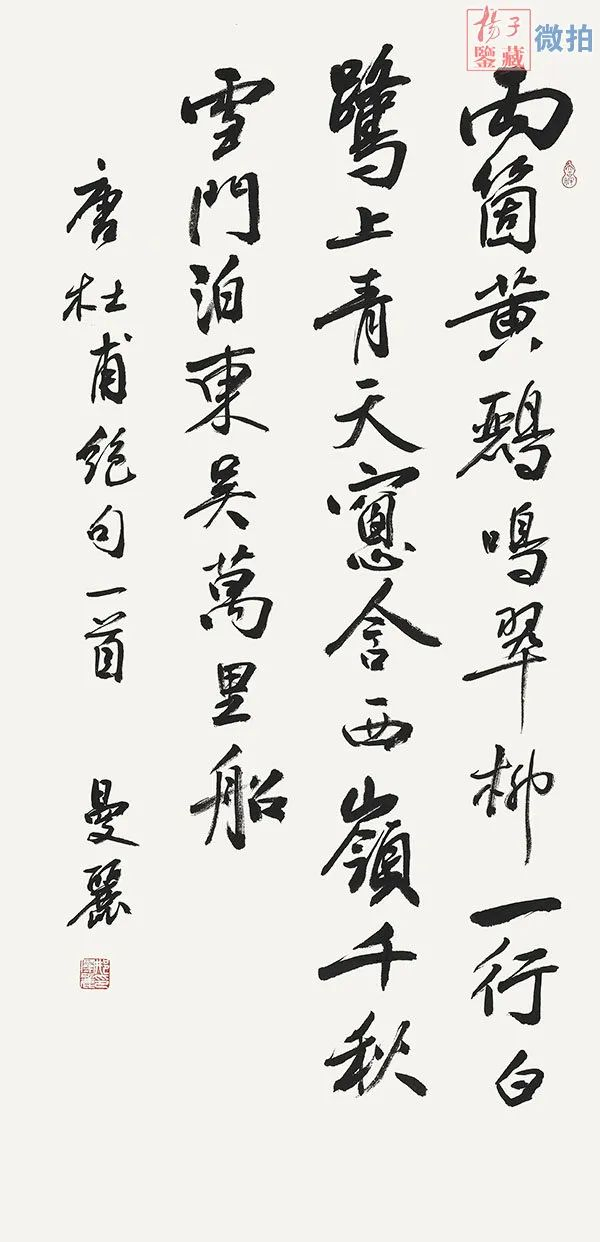 兩箇黄鸝鳴翠柳一行白
鷺上青天窻含西嶺千秋
雪門泊東吴萬里船
唐杜甫絶句一首 曼麗
揚子鑒藏
微拍